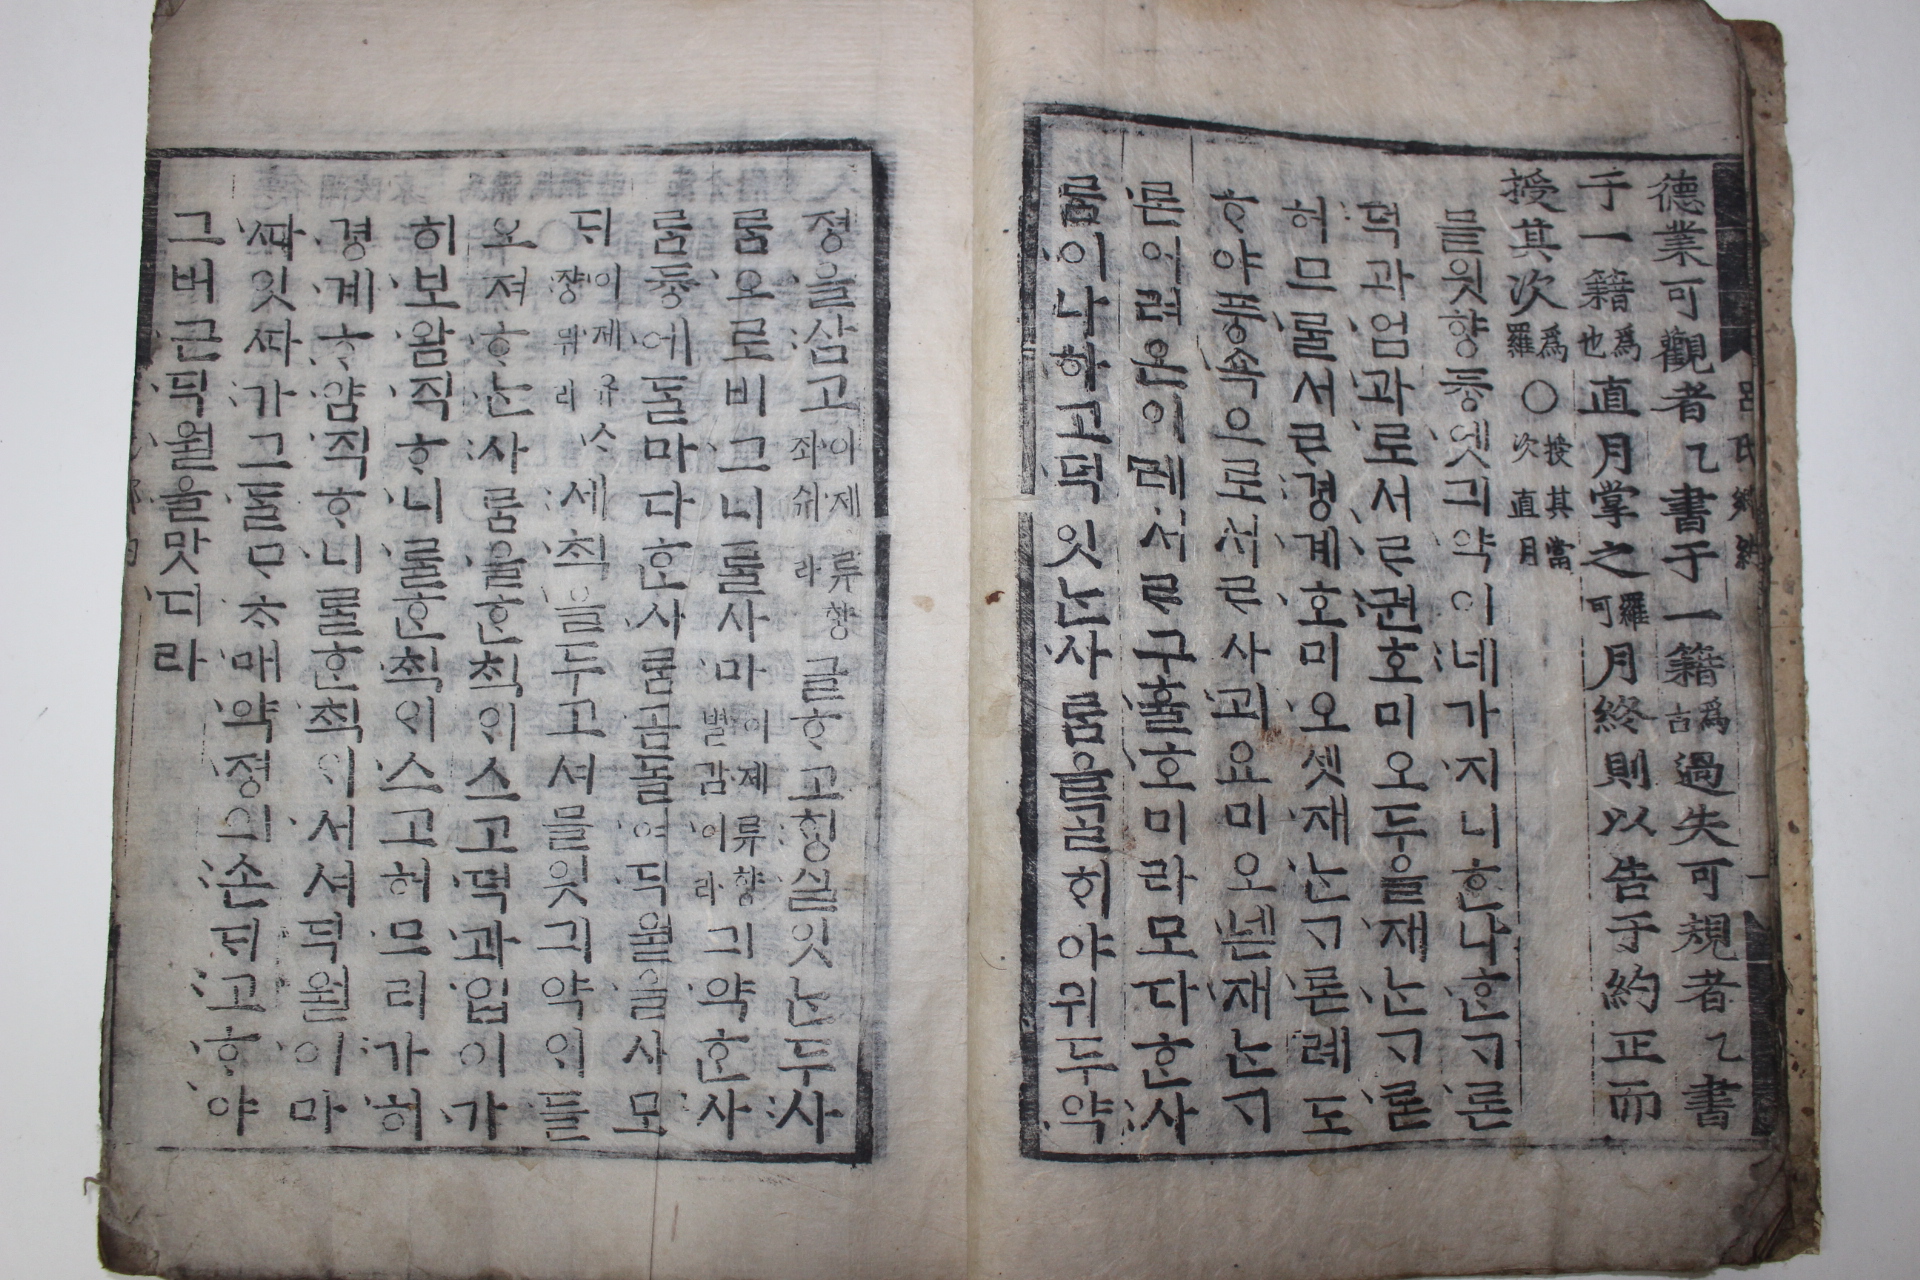 呂氏鄕約 一
德業可觀者乙書于一籍爲古過失可規者乙書
于一籍爲也直月掌之羅可月終則以告于約正而
授其次爲羅○授其當次直月
믈읫향듕엣긔약이네가지니ᄒᆞᆫ나ᄒᆞᆫᄀᆞ론
덕과업과로서르권호미오두을재ᄂᆞᆫᄀᆞ론
허므물서르경계호미오셋재ᄂᆞᆫᄀᆞ론례도
ᄒᆞ야풍쇽으로서르사괴요미오넫재ᄂᆞᆫᄀᆞ
론어려온이레서르구휼호미라모다ᄒᆞᆫ사
ᄅᆞᆷ이나하고덕잇ᄂᆞᆫ사ᄅᆞᆷ을ᄀᆞᆯ히야위두약
졍을삼고이제류향좌쉬라글ᄒᆞ고ᄒᆡᆼ실잇ᄂᆞᆫ두사
ᄅᆞᆷ오로비그니ᄅᆞᆯ사마이제류향별감이라긔약ᄒᆞᆫ사
ᄅᆞᆷ듕에ᄃᆞᆯ마다ᄒᆞᆫ사ᄅᆞᆷ곰ᄃᆞᆯ여딕월을사모
ᄃᆡ이제유ᄉᆞ쟝뮈라세ᄎᆡᆨ을두고셔믈읫긔약의들
오져ᄒᆞᄂᆞᆫ사ᄅᆞᆷ을ᄒᆞᆫᄎᆡᆨ의스고덕과업이가
히보암직ᄒᆞ니ᄅᆞᆯᄒᆞᆫᄎᆡᆨ의스고허므리가히
경계ᄒᆞ얌직ᄒᆞ니ᄅᆞᆯᄒᆞᆫᄎᆡᆨ의서셔딕월이마
ᄯᅡ잇ᄯᅡ가그ᄃᆞᆯᄆᆞᄎᆞ매약졍의손ᄃᆡ고ᄒᆞ야
그버근딕월을맛디라